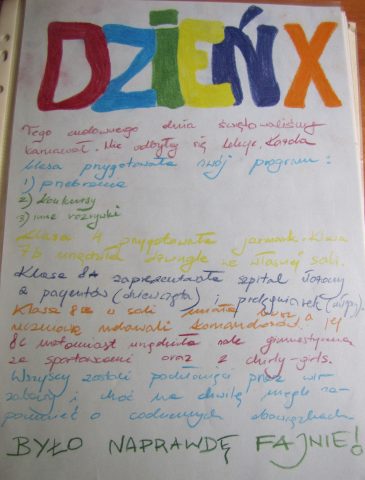 DZIEŃ X
Tego cudownego dnia świętowaliśmy
karnawał. Nie odbyły się lekcje. Każda
klasa przygotowała swój program:
1) przebrania
2) konkursy
3) inne rozrywki
Klasa 7A przygotowała jarmark. Klasa
7b urządziła dżunglę we własnej sali.
Klasa 8a zaprezentowała szpital złożony
z pacjentów (dziewczęta) i pielęgniarek
Klasa 8 w sali a jej
uczniowie udawali komandosów.
8c natomiast urządziła salę gimnastyczną
ze sportowcami oraz z chirly-girls.
Wszyscy zostali pochłonięci przez wir
zabawy i choć na chwilę mogli za-
pomnieć o codziennych obowiązkach.
BYŁO NAPRAWDĘ FAJNIE!